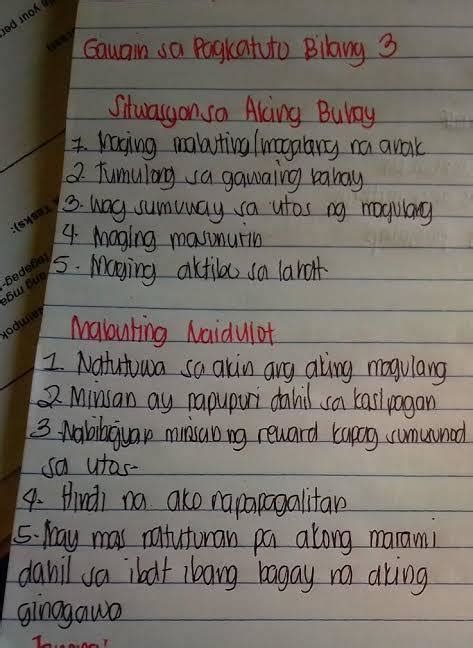 Gawain sa Pagkatuto Bilang 3
Sitwasyon sa Aking Buhay
1. Maging mabuting/magalang na anak
2. Tumulong sa gawaing bahay
3. Wag sumuway sa utos ng magulang
4. Maging masunurin
5. Maging aktibo sa lahat
Mabuting Naidulot
1. Natutuwa sa akin ang aking magulang
2. Minsan ay napupuri dahil sa kasipagan
3. Nabibigyan minsan ng reward kapag sumusunod
sa utos-
4. Hindi na ako napapagalitan
5. May mas natutunan pa akong marami
dahil sa ibat ibang bagay na aking
ginagawa